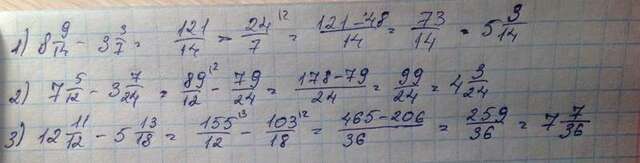 1) 8 9/14 - 3 3/7 = 121/14 - 24/7 ¹² = 121-48/14 = 73/14 = 5 3/14
2) 7 5/12 - 3 7/24 = 89/12 ¹² - 79/24 = 178-79/24 = 99/24 = 4 3/24
3) 12 11/12 - 5 13/18 = 155/12 ¹³ - 103/18 ¹² = 465-206/36 = 259/36 = 7 7/36